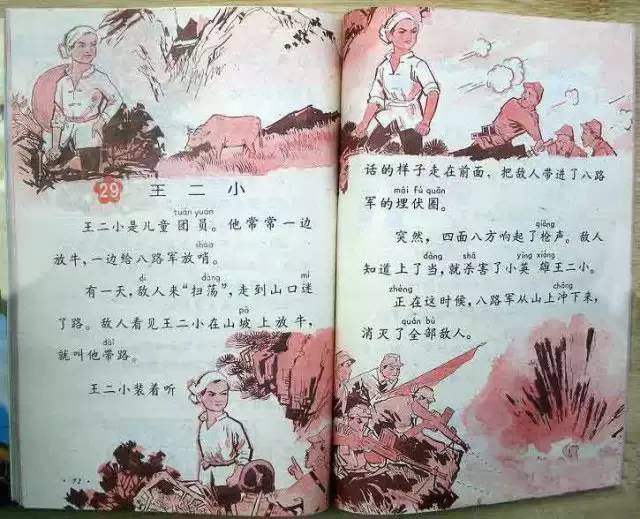 29
王二小
tuán yuán
王二小是儿童团员。他常常一边
shào
放牛，一边给八路军放哨。
dí dàng mí
有一天，敌人来“扫荡”，走到山口迷
pō
了路。敌人看见王二小在山坡上放牛，
dài
就叫他带路。
王二小装着听
·72·
话的样子走在前面，把敌人带进了八路
mái fú quān
军的埋伏圈。
qiāng
突然，四面八方响起了枪声。敌人
dàng shā yīng xióng
知道上了当，就杀害了小英雄王二小。
zhèng chōng
正在这时候，八路军从山上冲下来，
quán bù
消灭了全部敌人。